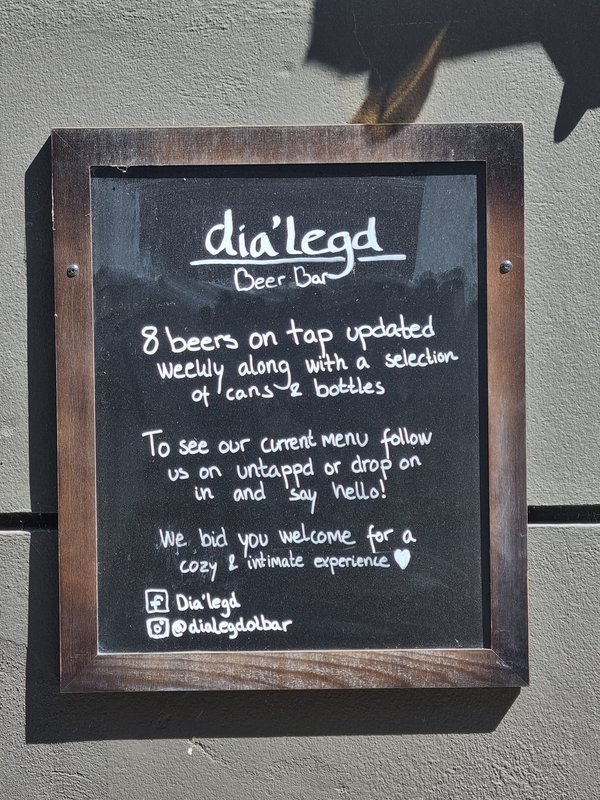 dia'legd
Beer Bar
8 beers on tap updated
weekly along with a selection
of cans & bottles
To see our current menu follow
us on untappd or drop on
in and say hello!
We bid you welcome for a
cozy & intimate experience ♥
f Dia'legd
@dialegdolbar